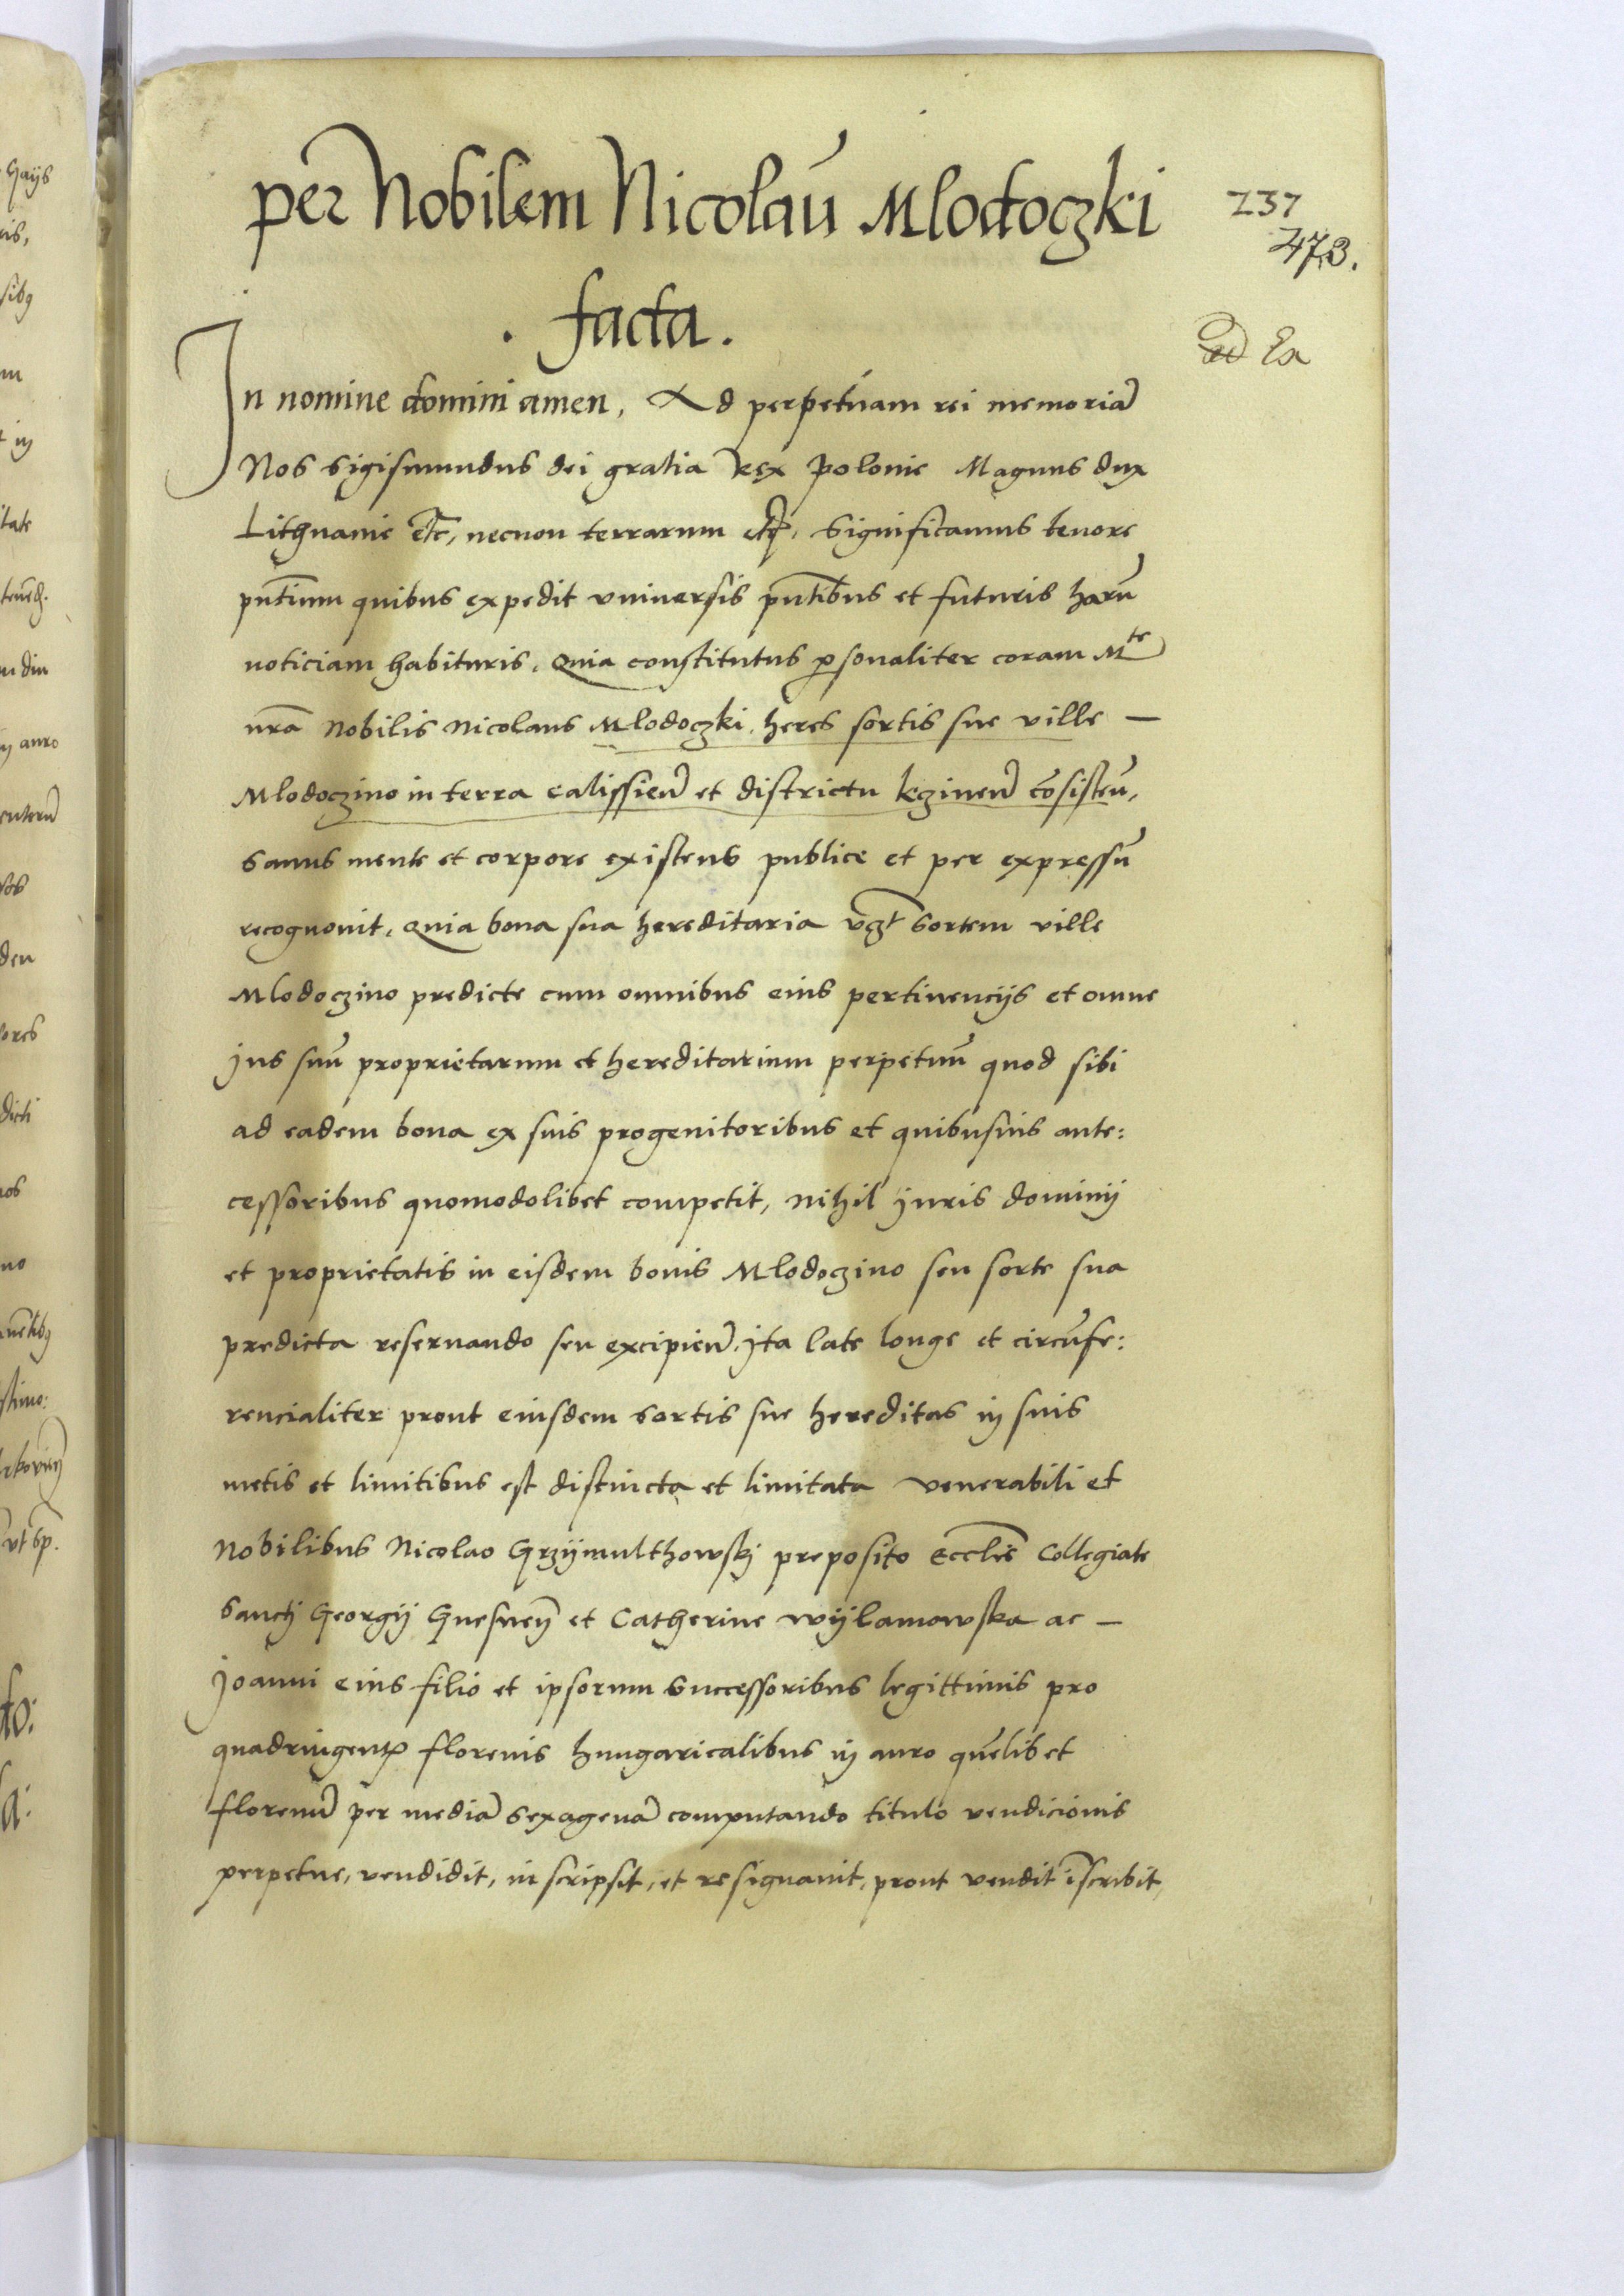 per Nobilem Nicolaū Mlodoczki
237
473.
. facta .
In nomine domini amen, Ad perpetuam rei memoriā
Nos Sigismundus dei gratia Rex Polonie Magnus dux
Lithuanie etc, necnon terrarum etc. Significamus tenore
pn̄tium quibus expedit vniuersis pn̄tibus et futuris harū
noticiam habituris. Quia constitutus personaliter coram Mte
nrā Nobilis Nicolaus Mlodoczki, heres sortis sue ville —
Mlodoczino in terra calissień et districtu kczineń cōsisteń,
sanus mente et corpore existens publice et per expressū
recognouit, Quia bona sua hereditaria vzt Sortem ville
Mlodoczino predicte cum omnibus eius pertinencijs et omne
jus suū proprietarum et hereditarium perpetuū quod sibi
ad eadem bona ex suis progenitoribus et quibusuis ante:
cessoribus quomodolibet competit, nihil juris dominij
et proprietatis in eisdem bonis Mlodoczino seu sorte sua
predicta reseruando seu excipień. Ita late longe et circūfe:
rencialiter prout eiusdem sortis sue hereditas in suis
metis et limitibus est distincta et limitata venerabili et
Nobilibus Nicolao Grzijmulthowskj preposito Ecclīe Collegiate
Sanctj Georgij Gnesneń et Catherine wijlamowska ac —
Joanni eius filio et ipsorum Successoribus legittimis pro
quadringentis florenis hungaricalibus in auro quēlibet
florenū per mediā sexagenā computando titulo vendicionis
perpetue, vendidit, inscripsit, et resignauit, prout vendit īscribit,